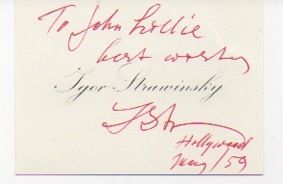 To John Lollie
best wishes
Igor Strawinsky
IStr
Hollywood
May/59